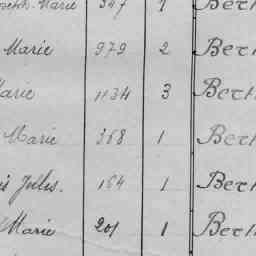 Marie 347 1 Bert
Marie 979 2 Bert
Marie 1134 3 Bert
Marie 368 1 Bert
Jules. 164 1 Bert
Marie 201 1 Bert